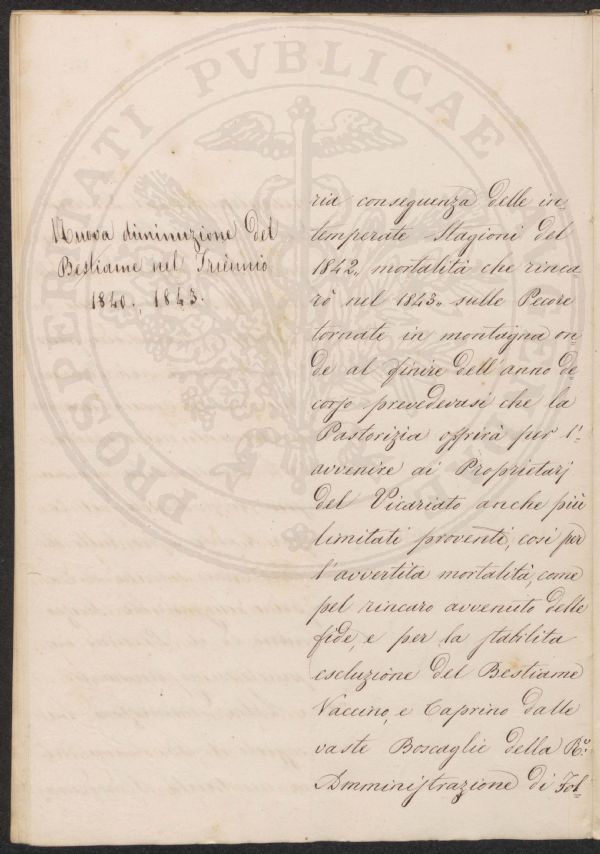 Nuova diminuzione del
Bestiame nel Triennio
1840., 1843.
ria conseguenza delle in-
temperate Stagioni del
1842,, mortalità che rinca
rò nel 1843,, sulle Pecore
tornate in montagna on
de al finire dell'anno de
corso prevedevasi che la
Pastorizia offrirà per l'-
avvenire ai Proprietarj
del Vicariato anche più
limitati proventi, così per
l'avvertita mortalità, come
pel rincaro avvenuto delle
fide, e per la stabilita
esclusione del Bestiame
Vaccino, e Caprino dalle
vaste Boscaglie della R.a
Amministrazione di Fol-
PROSPERITATI PVBLICAE